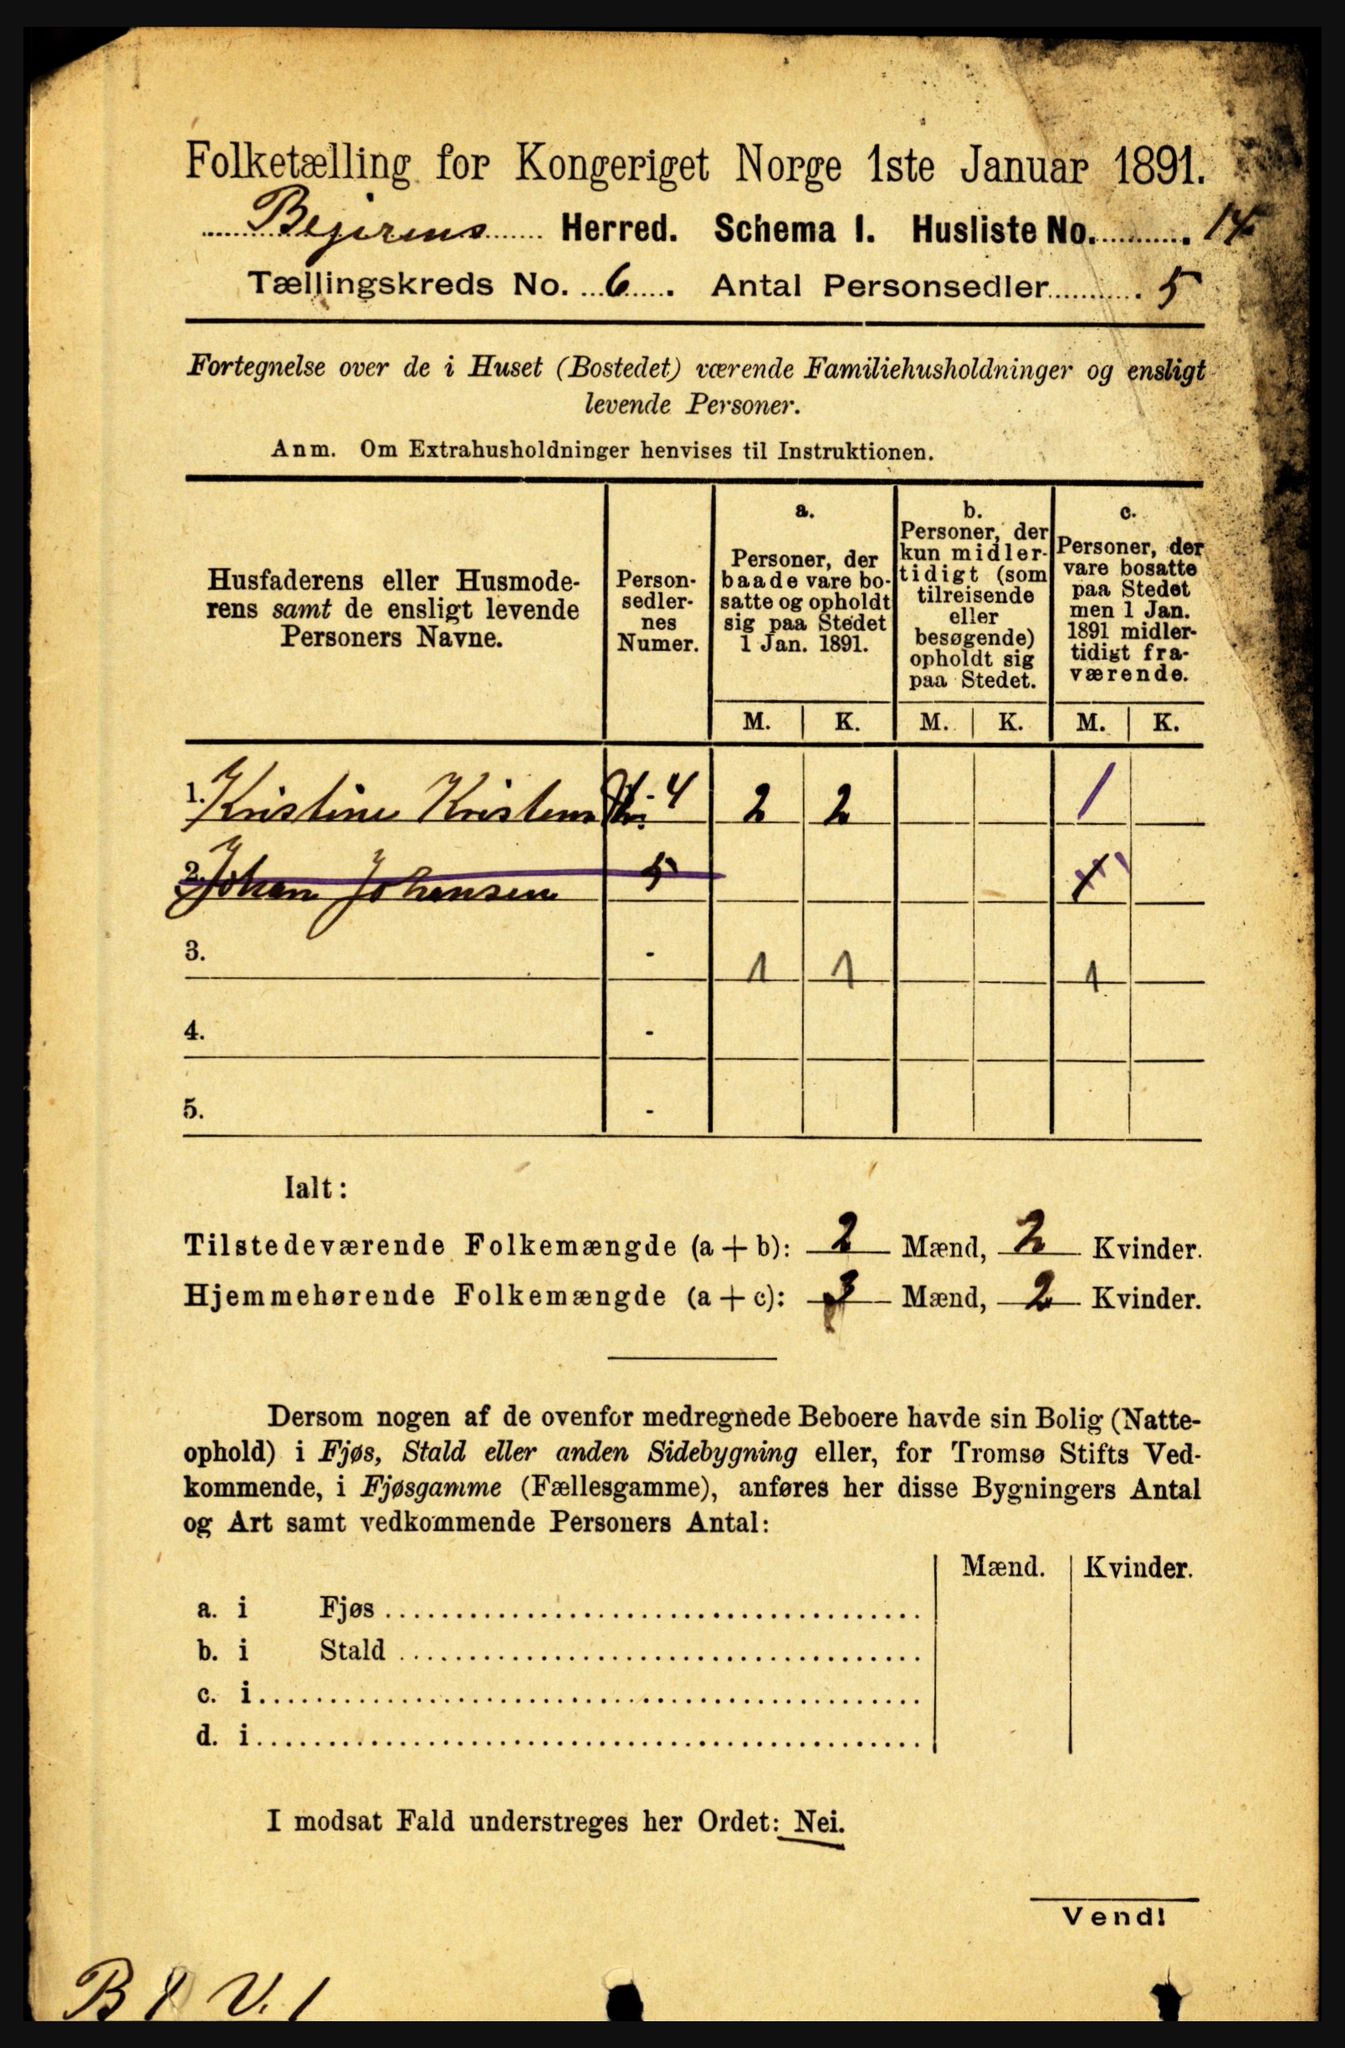 Folketælling for Kongeriget Norge 1ste Januar 1891.
Bejerens Herred. Schema I. Husliste No. 14
Tællingskreds No. 6. Antal Personsedler 5
Fortegnelse over de i Huset (Bostedet) værende Familiehusholdninger og ensligt
levende Personer.
Anm. Om Extrahusholdninger henvises til Instruktionen.
Husfaderens eller Husmode-
rens samt de ensligt levende
Personers Navne.
Person-
sedler-
nes
Numer.
a.
Personer, der
baade vare bo-
satte og opholdt
sig paa Stedet
1 Jan. 1891.
b.
Personer, der
kun midler-
tidigt (som
tilreisende
eller
besøgende)
opholdt sig
paa Stedet.
c.
Personer, der
vare bosatte
paa Stedet
men 1 Jan.
1891 midler-
tidigt fra-
værende.
M. K. M. K. M. K.
1. Kristine Kristens 4 2 2 1
2. Johan Johansen 5 1
3. - 1 1 1
4. -
5. -
Ialt:
Tilstedeværende Folkemængde (a + b): 2 Mænd, 2 Kvinder.
Hjemmehørende Folkemængde (a + c): 3 Mænd, 2 Kvinder.
Dersom nogen af de ovenfor medregnede Beboere havde sin Bolig (Natte-
ophold) i Fjøs, Stald eller anden Sidebygning eller, for Tromsø Stifts Ved-
kommende, i Fjøsgamme (Fællesgamme), anføres her disse Bygningers Antal
og Art samt vedkommende Personers Antal:
Mænd. Kvinder.
a. i Fjøs
b. i Stald
c. i
d. i
I modsat Fald understreges her Ordet: Nei.
Vend!
B V. 1